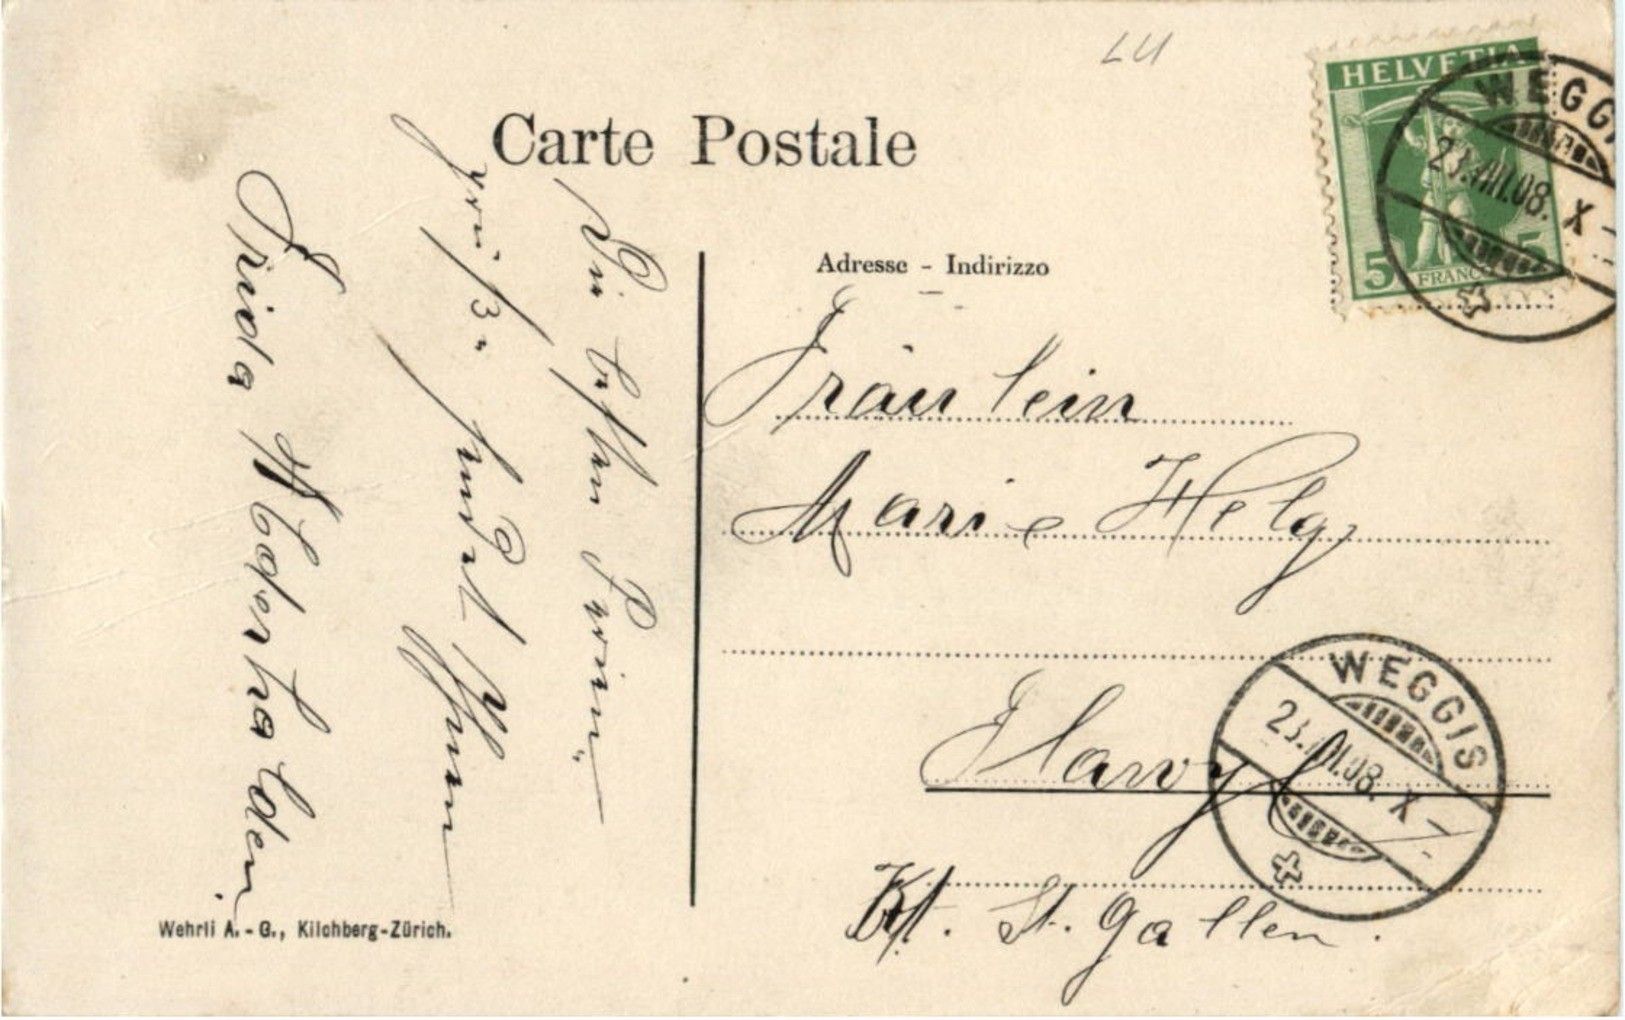 LU
Carte Postale
HELVETIA
5
5
FRANCO
WEGGI
23.VIII.08. X
Adresse - Indirizzo
Fräulein
Marie Helg
Flawyl
Kt. St. Gallen.
WEGGIS
23.VIII.08. X
Die besten Ferien-
grüße sendet Ihnen
Frida Aberhalden
Wehrli A.-G., Kilchberg-Zürich.